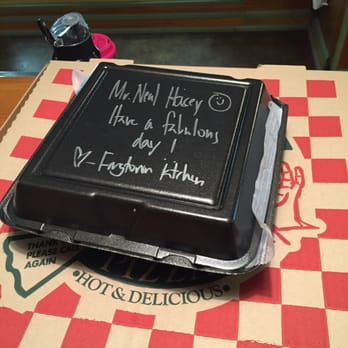 Mr. Neal Hocey
Have a fabulous
day!
♡- Frogtown Kitchen
THANK
PLEASE CA
AGAIN
· HOT & DELICIOUS ·